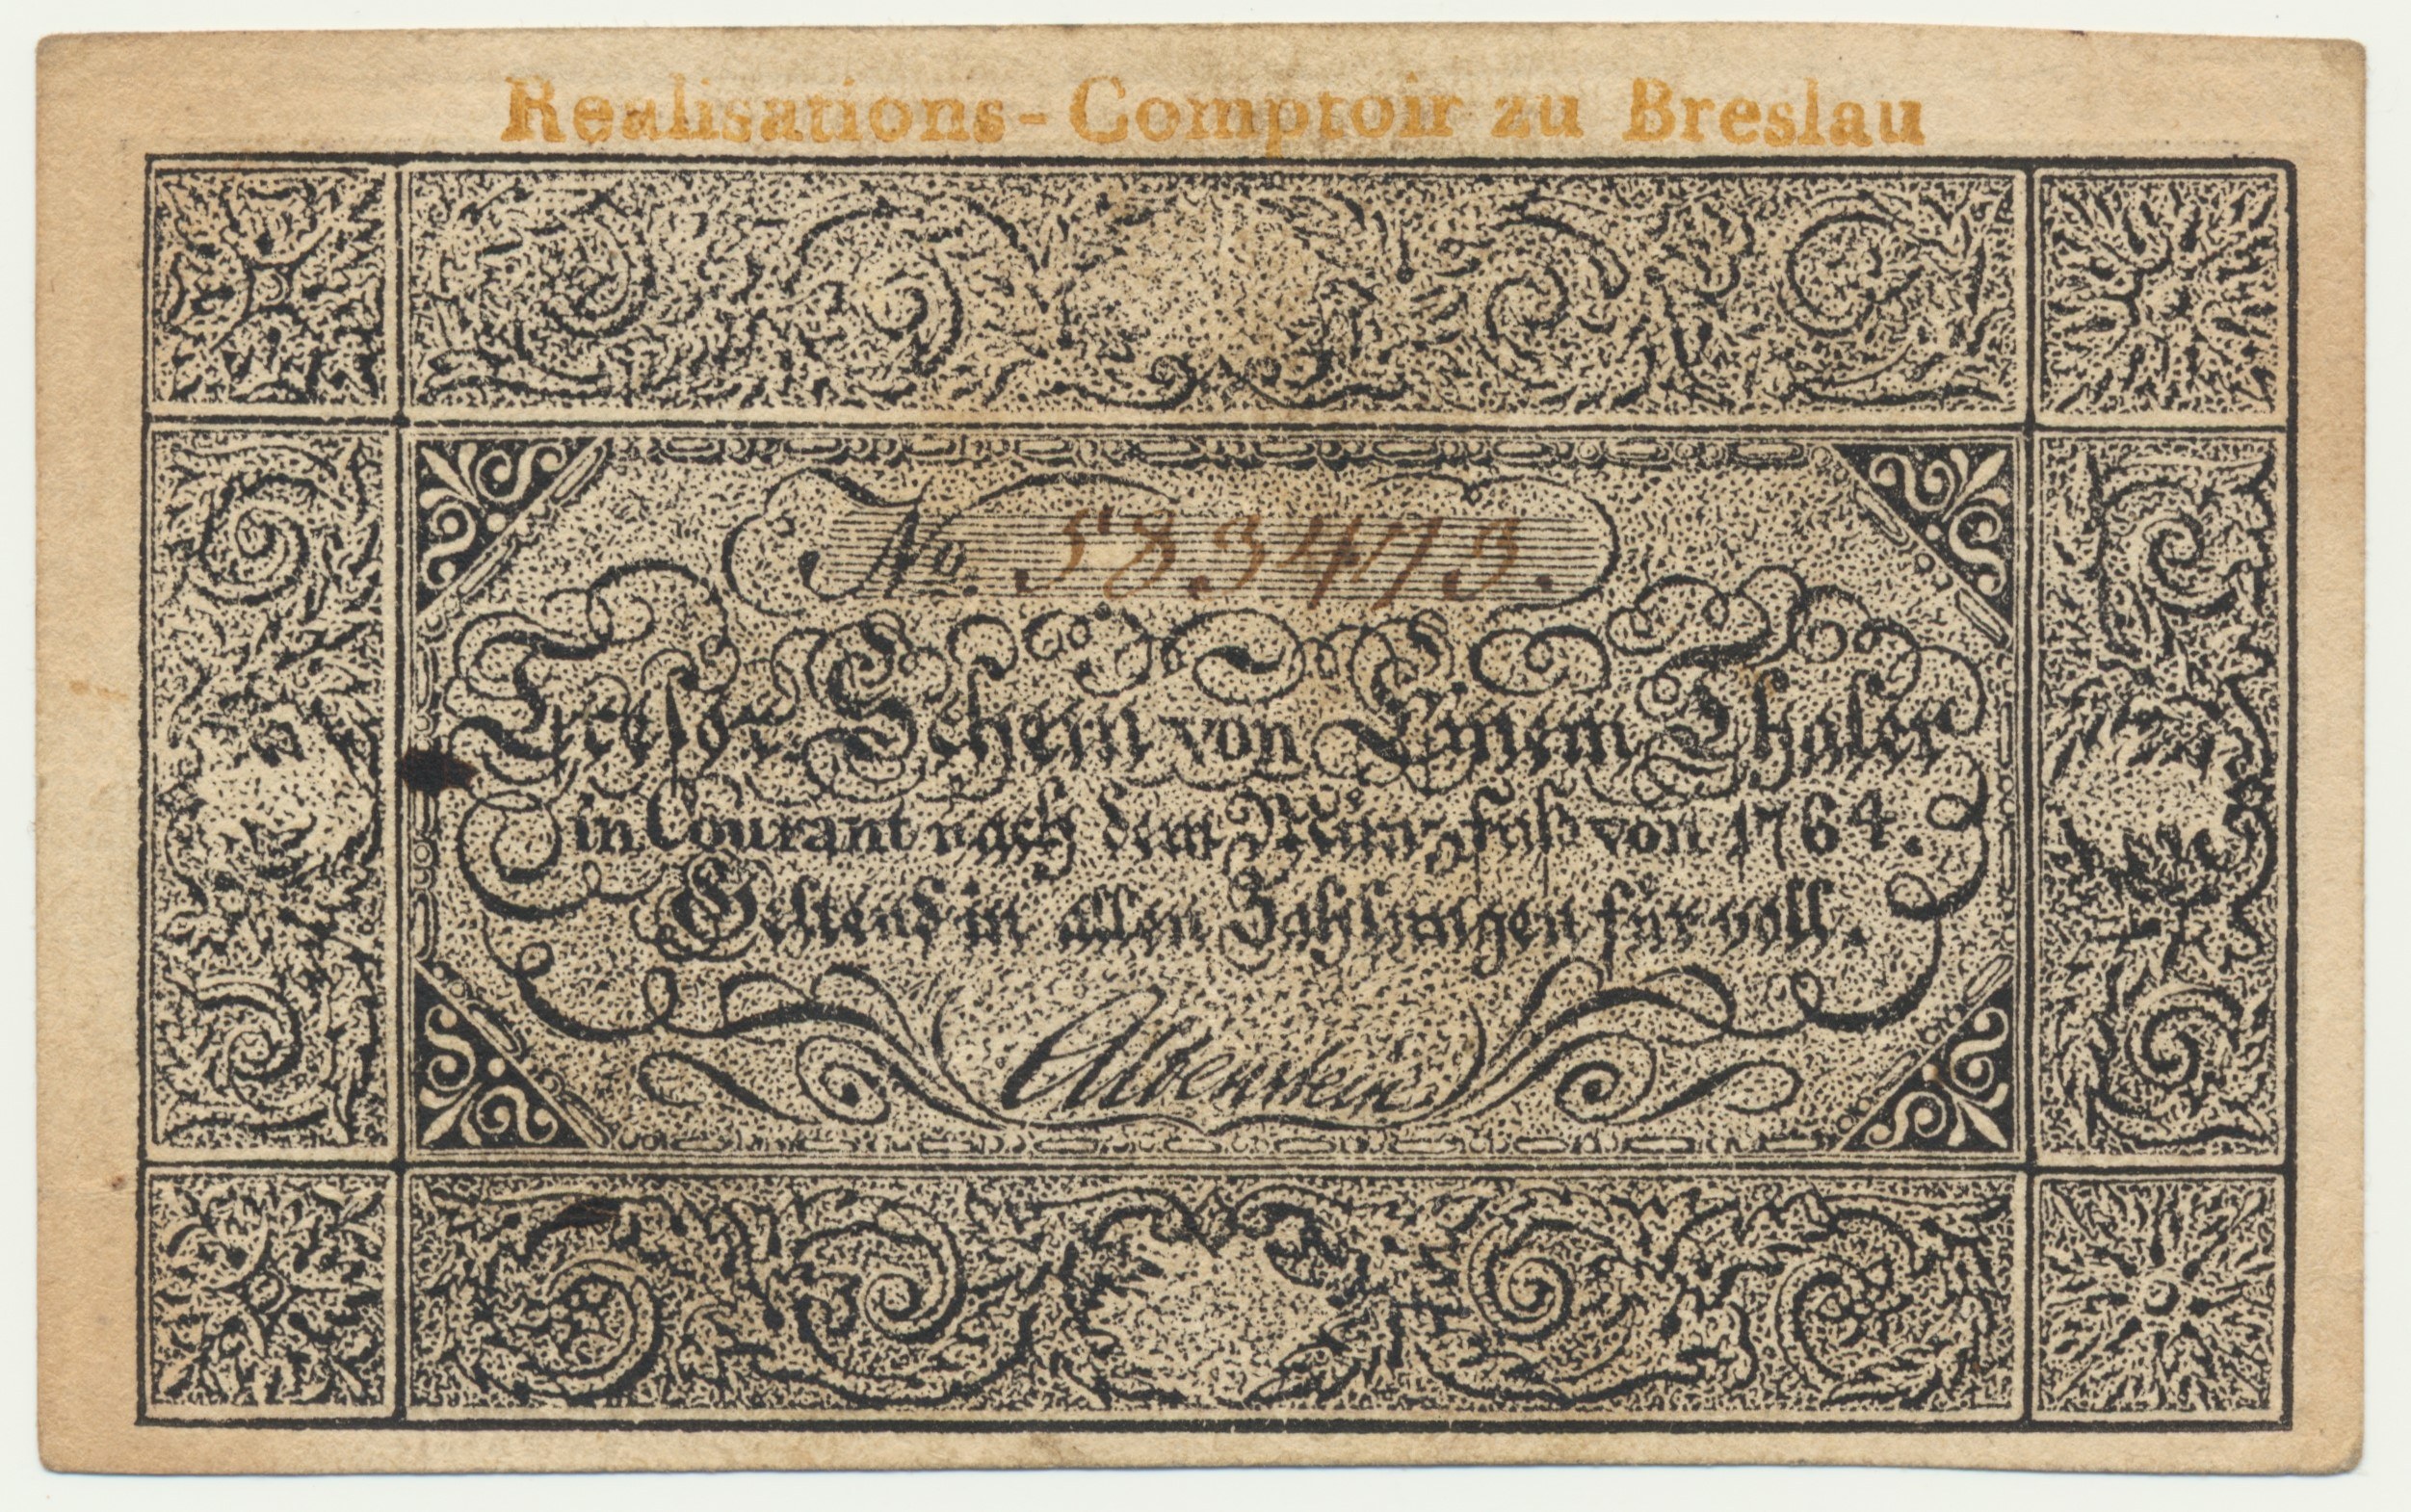 Realisations-Comptoir zu Breslau
No. 583473.
Tresor-Schein von Einem Thaler
in Courant nach dem Münzfuß von 1764.
Geltend in allen Zahlungen für voll.
Altenstein